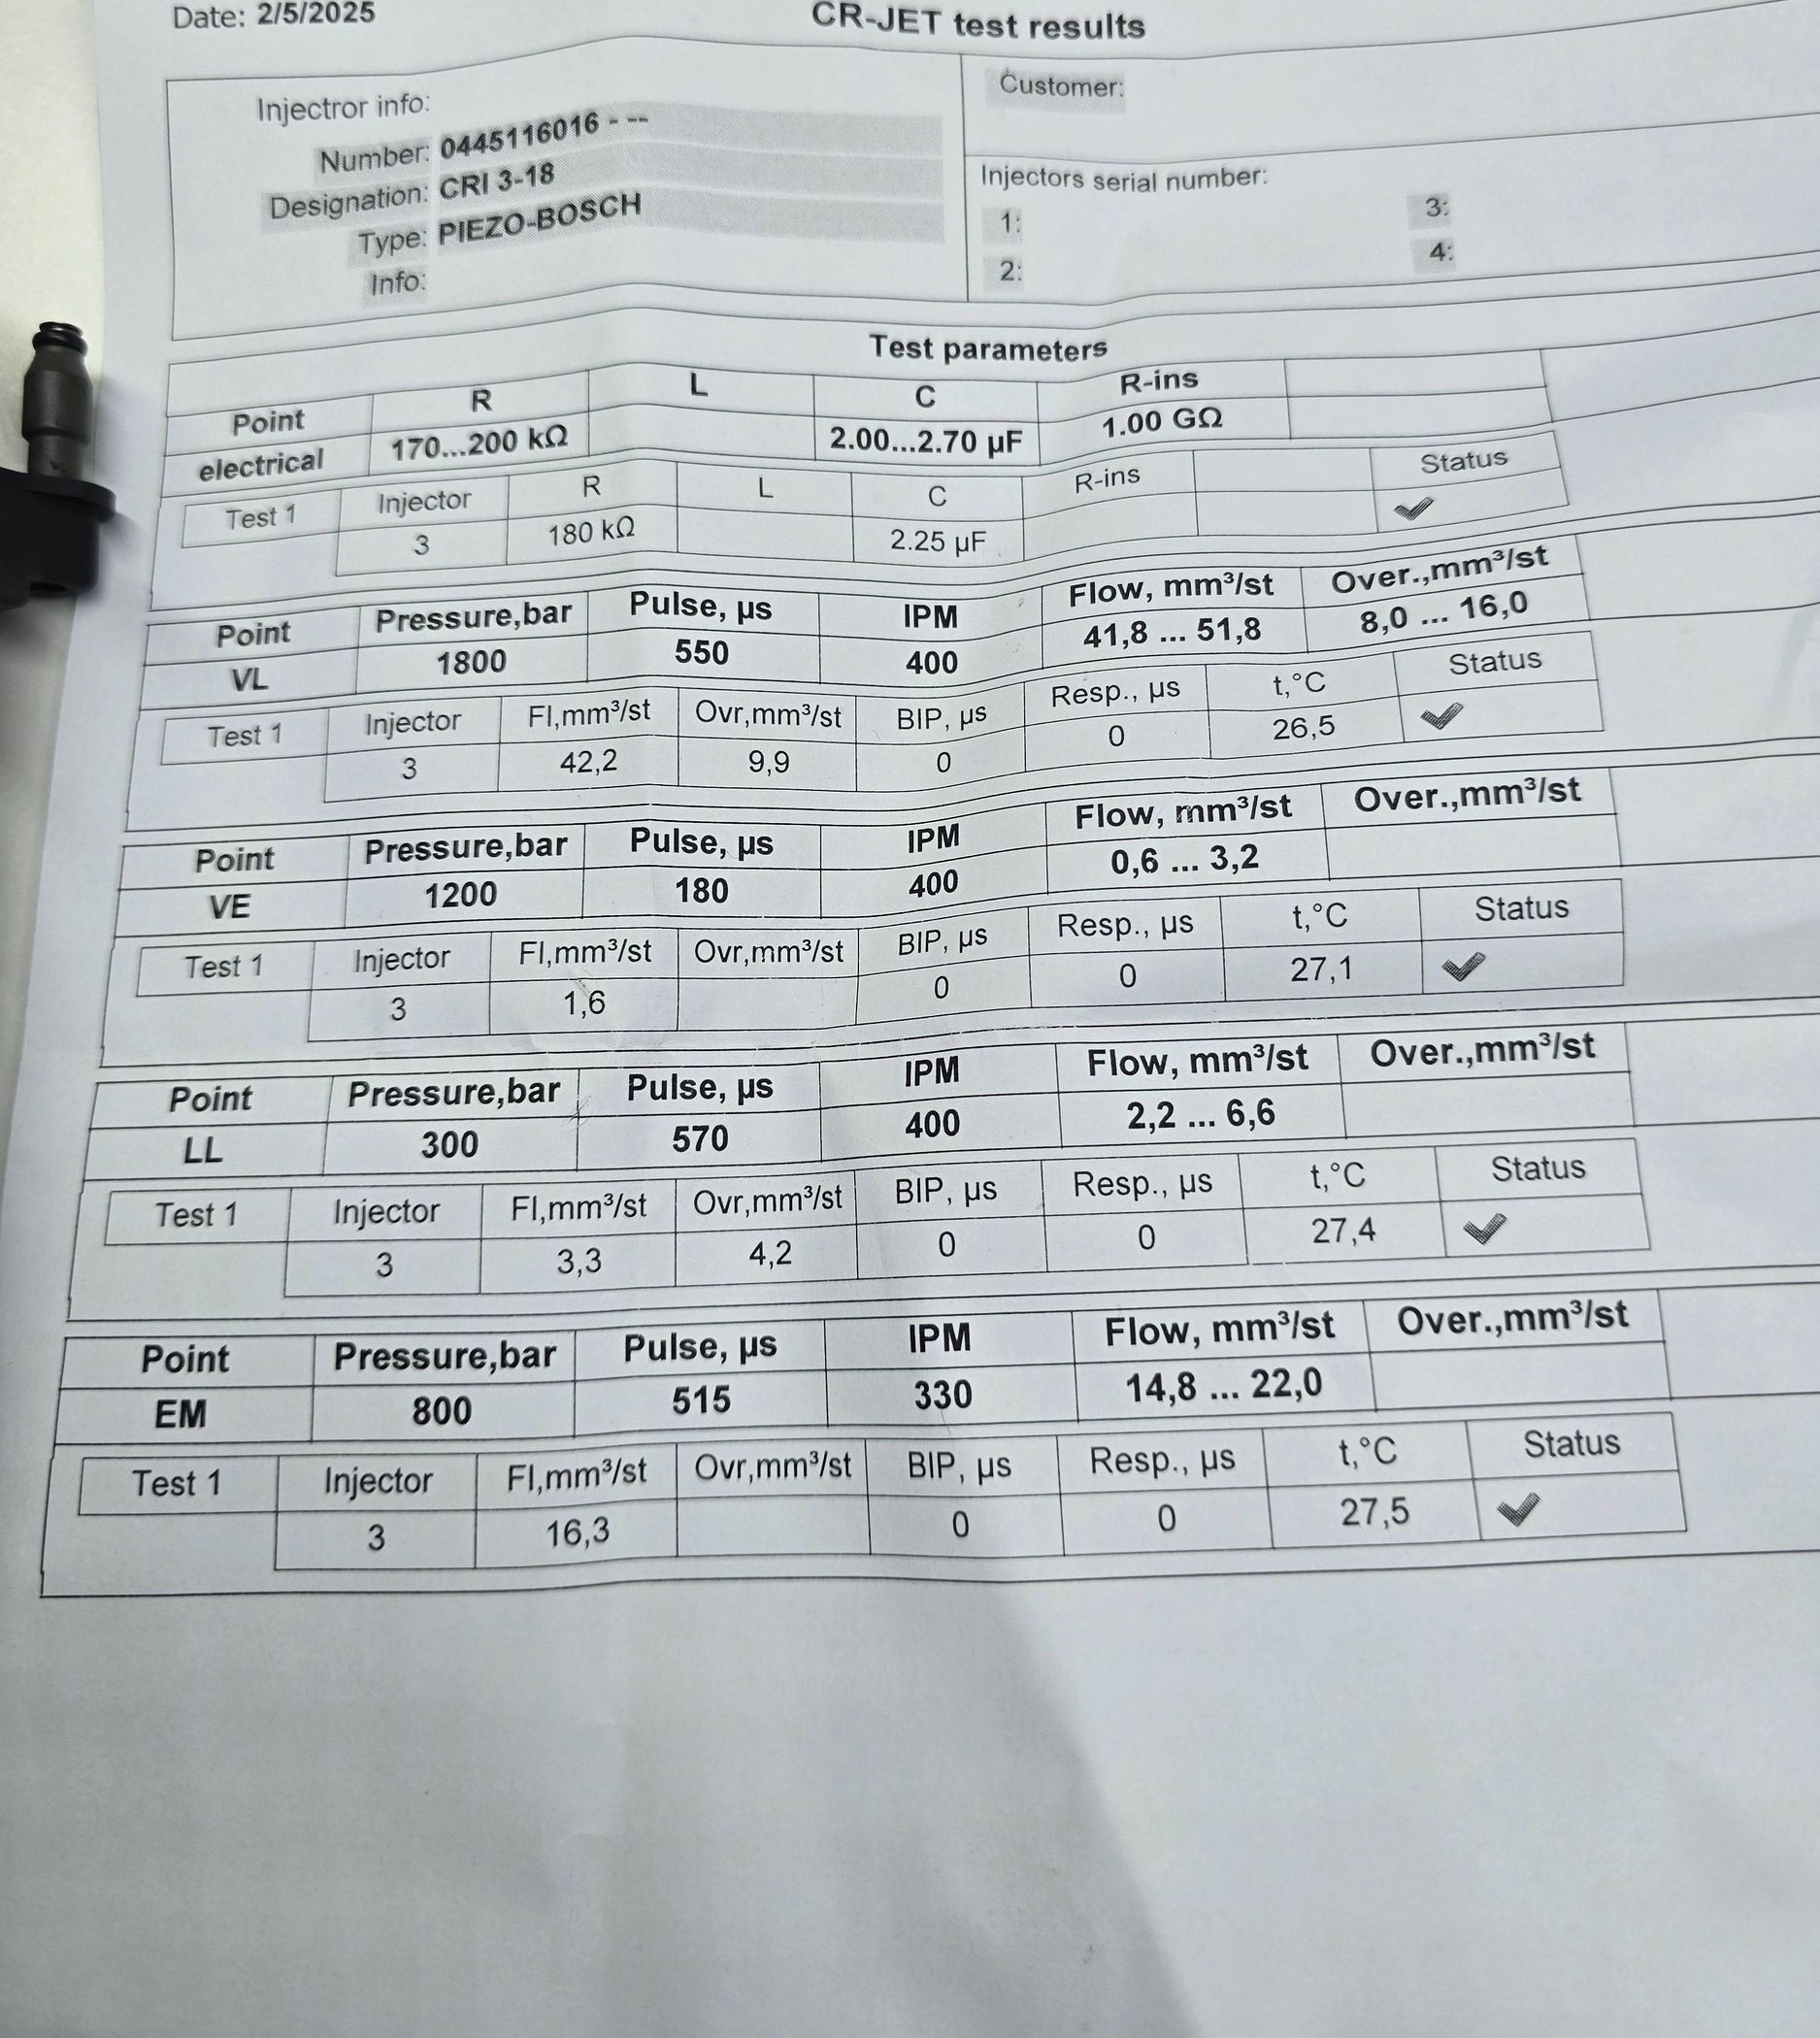 Date: 2/5/2025
CR-JET test results
Injectror info:
Number: 0445116016 - --
Designation: CRI 3-18
Type: PIEZO-BOSCH
Info:
Customer:
Injectors serial number:
1: 3:
2: 4:
Test parameters
Point R L C R-ins
electrical 170...200 kΩ 2.00...2.70 µF 1.00 GΩ
Test 1 Injector R L C R-ins Status
3 180 kΩ 2.25 µF ✓
Point Pressure,bar Pulse, µs IPM Flow, mm³/st Over.,mm³/st
VL 1800 550 400 41,8 ... 51,8 8,0 ... 16,0
Test 1 Injector Fl,mm³/st Ovr,mm³/st BIP, µs Resp., µs t,°C Status
3 42,2 9,9 0 0 26,5 ✓
Point Pressure,bar Pulse, µs IPM Flow, mm³/st Over.,mm³/st
VE 1200 180 400 0,6 ... 3,2
Test 1 Injector Fl,mm³/st Ovr,mm³/st BIP, µs Resp., µs t,°C Status
3 1,6 0 0 27,1 ✓
Point Pressure,bar Pulse, µs IPM Flow, mm³/st Over.,mm³/st
LL 300 570 400 2,2 ... 6,6
Test 1 Injector Fl,mm³/st Ovr,mm³/st BIP, µs Resp., µs t,°C Status
3 3,3 4,2 0 0 27,4 ✓
Point Pressure,bar Pulse, µs IPM Flow, mm³/st Over.,mm³/st
EM 800 515 330 14,8 ... 22,0
Test 1 Injector Fl,mm³/st Ovr,mm³/st BIP, µs Resp., µs t,°C Status
3 16,3 0 0 27,5 ✓